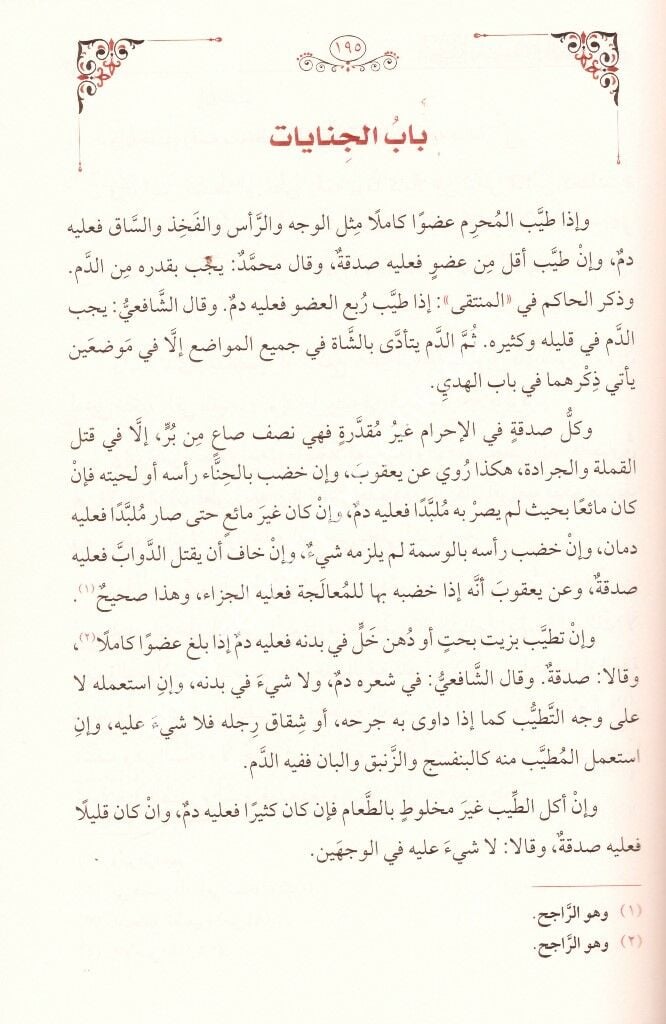 ١٩٥
بابُ الجِنايات
وإذا طيَّب المُحرِم عضوًا كاملًا مِثل الوجه والرَّأس والفَخِذ والسَّاق فعليه
دمٌ، وإنْ طيَّب أقل مِن عضوٍ فعليه صدقةٌ، وقال محمَّدٌ: يجب بقدره مِن الدَّم.
وذكر الحاكم في «المنتقى»: إذا طيَّب رُبع العضو فعليه دمٌ. وقال الشَّافعيُّ: يجب
الدَّم في قليله وكثيره. ثُمَّ الدَّم يتأدَّى بالشَّاة في جميع المواضع إلَّا في مَوضعَين
يأتي ذِكْرهما في باب الهديِ.
وكلُّ صدقةٍ في الإحرام غيرُ مُقدَّرةٍ فهي نصف صاعٍ مِن بُرٍّ، إلَّا في قتل
القملة والجرادة، هكذا رُوي عن يعقوبَ، وإن خضب بالحِنَّاء رأسه أو لحيته فإنْ
كان مائعًا بحيث لم يصرْ به مُلبَّدًا فعليه دمٌ، وإنْ كان غيرَ مائعٍ حتى صار مُلبَّدًا فعليه
دمان، وإنْ خضب رأسه بالوسمة لم يلزمه شيءٌ، وإنْ خاف أن يقتل الدَّوابَّ فعليه
صدقةٌ، وعن يعقوبَ أنَّه إذا خضبه بها للمُعالَجة فعليه الجزاء، وهذا صحيحٌ(١).
وإنْ تطيَّب بزيت بحتٍ أو دُهن خَلٍّ في بدنه فعليه دمٌ إذا بلغ عضوًا كاملًا(٢)،
وقالا: صدقةٌ. وقال الشَّافعيُّ: في شعره دمٌ، ولا شيءَ في بدنه، وإنِ استعمله لا
على وجه التَّطيُّب كما إذا داوى به جرحه، أو شِقاق رِجله فلا شيءَ عليه، وإنِ
استعمل المُطيَّب منه كالبنفسج والزَّنبق والبان ففيه الدَّم.
وإنْ أكل الطِّيب غيرَ مخلوطٍ بالطَّعام فإن كان كثيرًا فعليه دمٌ، وانْ كان قليلًا
فعليه صدقةٌ، وقالا: لا شيءَ عليه في الوجهَين.
(١) وهو الرَّاجح.
(٢) وهو الرَّاجح.